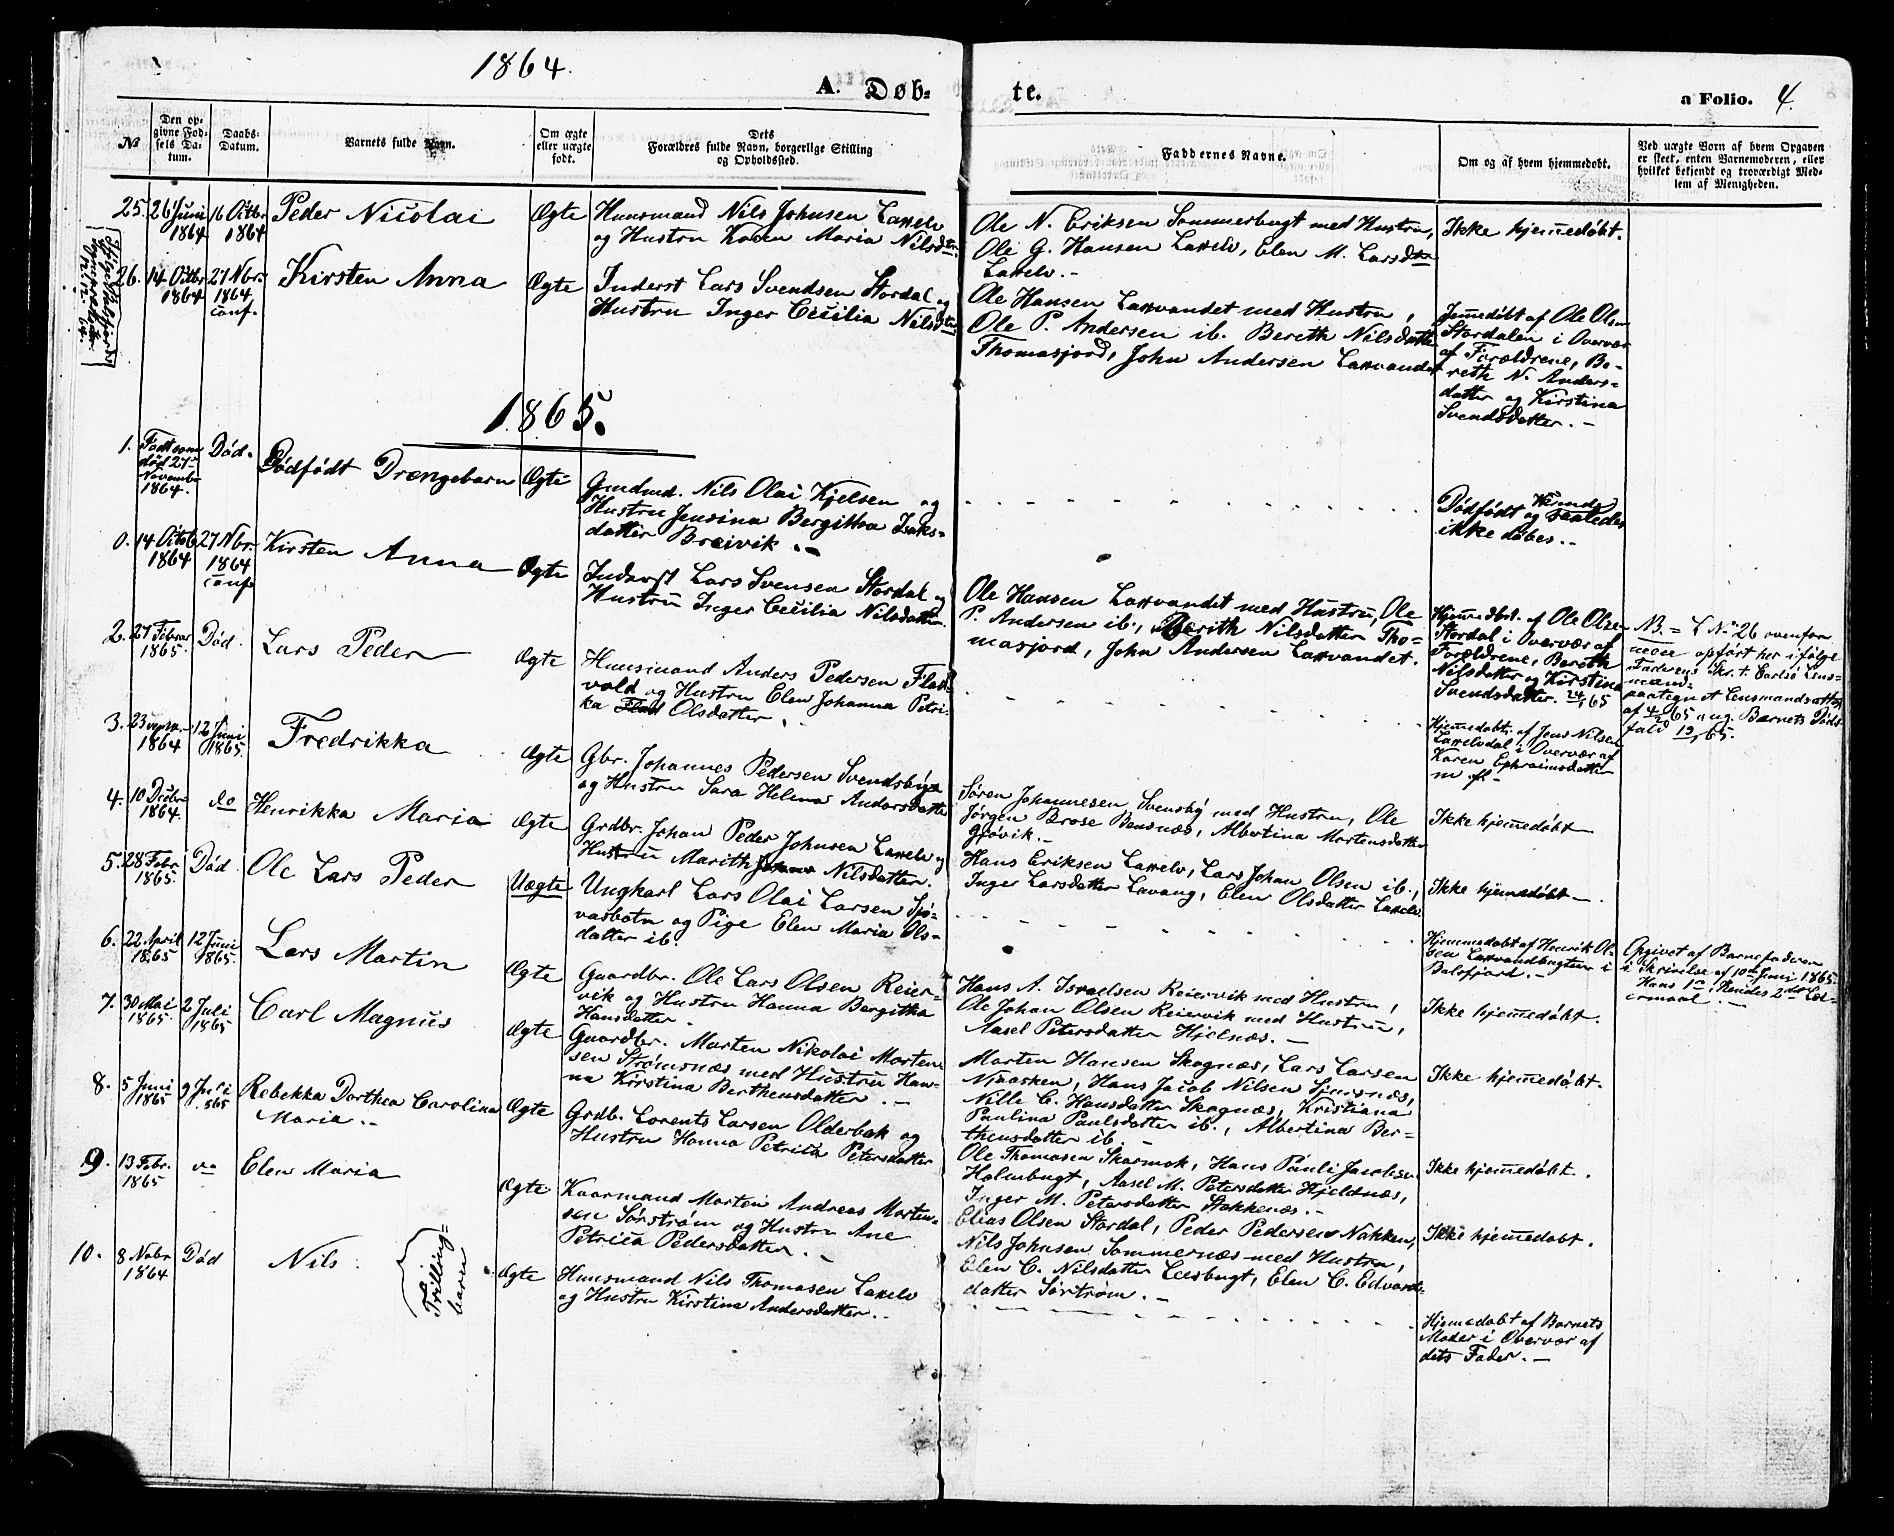 1864.
A. Døb-
te.
a Folio. 4.
№
Den op-
givne Fød-
sels Da-
tum.
Daabs-
Datum.
Barnets fulde Navn.
Om ægte
eller uægte
født.
Dets
Forældres fulde Navn, borgerlige Stilling
og Opholdssted.
Faddernes Navne.
Om og af hvem hjemmedøbt.
Ved uægte Børn af hvem Opgaven
er skeet, enten Barnemoderen, eller
hvilket bekjendt og troværdigt Med-
lem af Menigheden.
25. 26 Juni
1864
16 Octbr
1864
Peder Nicolai
Ægte
Huusmand Nils Johnsen Laxelv
og Hustru Karen Maria Nilsdtr.
Ole N. Eriksen Sommerbugt med Hustru,
Ole G. Hansen Laxelv, Elen M. Larsdtr
Laxelv.-
Ikke hjemedøbt.
26. 14 Octbr
1864
27 Nbr.
1864
conf.
Kirsten Anna
Ægte
Inderst Lars Svendsen Stordal og
Hustru Inger Cecilia Nilsdtr.
Ole Hansen Laxvandet med Hustru,
Ole P. Andersen ib. Bereth Nilsdatter
Thomasjord, John Andersen Laxvandet
Jemedøbt af Ole Olsen
Stordalen i Overvær
af Forældrene, Be-
reth N. Anders-
datter og Kirstina
Svendsdatter.-
1865.
1. Født som
død 27de
November
1864.
Død.
Dødfødt Drengebarn
Ægte
Gmdmd. Nils Olai Kjelsen og
Hustru Jensina Bergitha Isaks-
datter Breivik.-
Dødfødt og kunde saaledes
ikke døbes.-
0. 14 Octob
1864
27 Nbr.
1864
conf.
Kirsten Anna
Ægte
Inderst Lars Svensen Stordal og
Hustru Inger Cecilia Nilsdatter.
Ole Hansen Laxvandet med Hustru, Ole
P. Andersen ib., Berith Nilsdatter Tho-
masjord, John Andersen Laxvandet.
Hjemedbt. af Ole Olsen
Stordal i Overvær af
Forældrene, Bereth
Nilsdatter og Kirstina
Svendsdatter. 24/1 65
NB. = L No 26 ovenfor
men opført her i følge
Faderens Skr. t. Carlsø Lens-
mand-
paategnet Lensmandsattest
af 4/2 65 ang. Barnets Døds-
fald 12/1 65.
2. 27 Febrar
1865.
Død.
Lars Peder
Ægte
Huusmand Anders Pedersen Flad-
vold og Hustru Elen Johanna Petri-
ka Olsdatter.
Hjemedøbt. af Jens Nilsen
Laxelvdal i Overvær af
Karen Ephraimsdatter
m fl.-
3. 23
1864
12 Juni
1865.
Fredrikka
Ægte
Gbr. Johannes Pedersen Svendsbye
og Hustru Sara Helena Andorsdatter
Søren Johannesen Svensby med Hustru, Ole
Jørgen Brose Bensnæs, Albertina Mortensdatter
Gjøvik.-
Ikke hjemedøbt
4. 10 Decbr
1864.
do
Henrikka Maria
Ægte
Grdbr. Johan Peder Johnsen Laxelv og
Hustru Marith Nilsdatter.
Hans Eriksen Laxelv, Lars Johan Olsen ib.,
Inger Larsdatter Lavang, Elen Olsdatter Laxelv.
Ikke hjemedøbt-.
5. 28 Febr
1865.
Død
Ole Lars Peder
Uægte
Ungkarl Lars Olai Larsen Sjø-
vasbotn og Pige Elen Maria Ols-
datter ib.
Hjemmedøbt af Henrik Ol-
sen Laxvandbugten i
Balsfjord.-
Opgivet af Barnefaderen
i Skrivelse af 10de Juni 1865.
Hans 1ste, Hendes 2det Lei-
ermaal.-
6. 22 April
1865
12 Juni
1865.
Lars Martin
Ægte
Gaardbr. Ole Lars Olsen Reier-
vik og Hustru Hanna Bergitha
Hansdatter.
Hans A. Israelsen Reiervik med Hustru,
Ole Johan Olsen Reiervik med Hustru,
Aasel Petersdatter Hjelnæs.-
Ikke hjemedøbt.
7. 30 Mai
1865.
2 Juli
1865
Carl Magnus
Ægte
Gaardbr. Morten Nikolai Morten-
sen Strømsnæs med Hustru Han-
na Kirstina Berthensdatter.-
Morten Hansen Skognæs, Lars Larsen
Njaasken, Hans Jacob Nilsen
Nille C. Hansdatter Skognæs, Kristiana
Paulina Paulsdatter ib., Albertina Ber-
thensdatter ib.-
Ikke hjemedøbt.
8. 5 Juni
1865
9 Juli
1865
Rebekka Dorthea Carolina
Maria.-
Ægte
Grdb. Lorents Larsen Olderbak og
Hustru Hanna Petrica Petersdatter
Ole Thomasen Skarmok, Hans Pauli Jacobsen
Holmbugt, Aasel M. Petersdatter Hjeldnæs,
Inger M. Petersdatter Stokkenæs.-
Ikke hjemedøbt.
9. 13 Febr.
1865
do
Elen Maria
Ægte
Kaarmand Morten Andreas Morten-
sen Sørstrøm og Hustru Ane
Petrica Pedersdatter.-
Elias Olsen Stordal, Peder Pedersen Nakken,
Nils Johnsen Sommernæs med Hustru,
Elen C. Nilsdatter Leesbugt, Elen C. Edvards-
datter Sørstrøm.-
Ikke hjemedøbt.
10. 8 Nobr
1864
Død
Nils
Trilling-
barn
Ægte
Huusmand Nils Thomasen Laxelv
og Hustru Kirstina Andersdatter.-
Hjemedøbt af Barnets
Moder i Overvær af
dets Fader.-